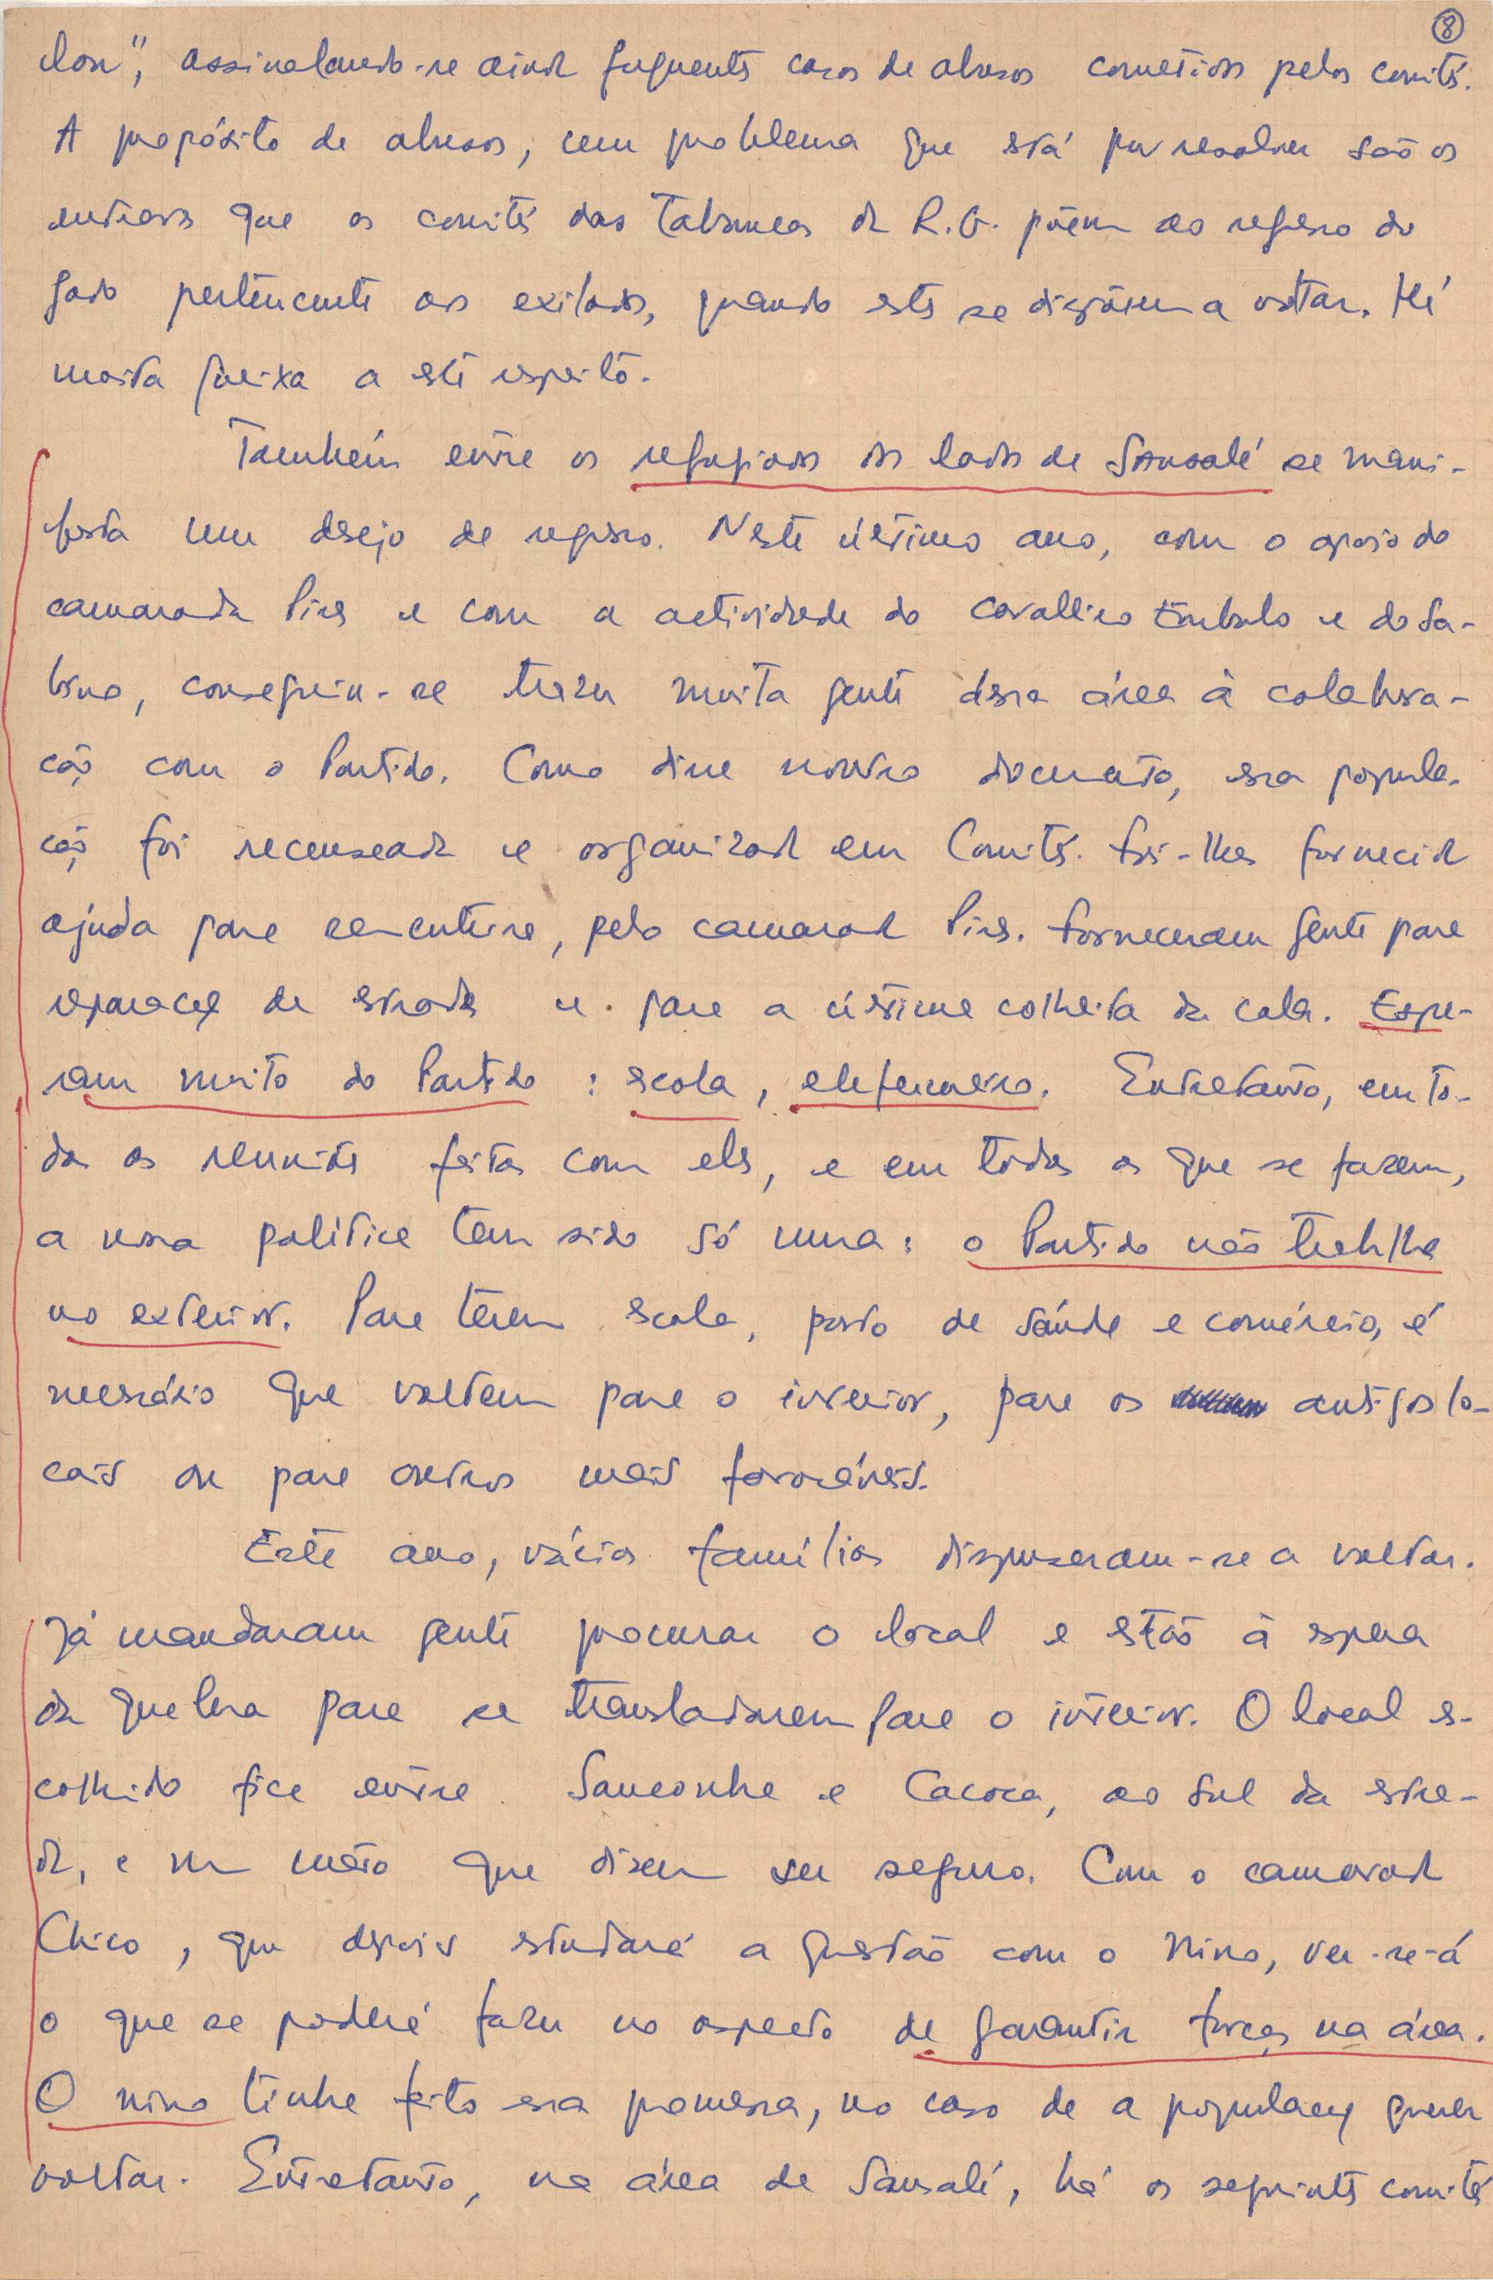 8
dor", assinalando-se ainda frequentes casos de abusos cometidos pelos comités.
A propósito de abusos, um problema que está por resolver são os
entraves que os comités das Tabancas da R.G. põem ao regresso do
gado pertencente aos exilados, quando estes se dispõem a voltar. Há
muita queixa a este respeito.
Também entre os refugiados dos lados de Sansalé se mani-
festa um desejo de regresso. Neste último ano, com o apoio do
camarada Pires e com a actividade do Cavalleiro Embalo e do Sa-
bino, conseguiu-se trazer muita gente dessa área à colabora-
ção com o Partido. Como disse noutro documento, essa popula-
ção foi recenseada e organizada em Comités. Foi-lhes fornecida
ajuda para sementeira, pelo camarada Pires. Forneceram gente para
reparação de estradas e para a última colheita da cola. Espe-
ram muito do Partido: escola, enfermeiro. Entretanto, em to-
das as reuniões feitas com eles, e em todas as que se fazem,
a nossa política tem sido só uma: o Partido não trabalha
no exterior. Para terem escola, posto de saúde e comércio, é
necessário que voltem para o interior, para os antigos lo-
cais ou para outros mais favoráveis.
Este ano, várias famílias dispuseram-se a voltar.
Já mandaram gente procurar o local e estão à espera
da quebra para se transladarem para o interior. O local es-
colhido fica entre Sanconha e Cacoca, ao Sul da estra-
da, e num mato que dizem ser seguro. Com o camarada
Chico, que depois estudará a questão com o Nino, ver-se-á
o que se poderá fazer no aspecto de garantir forças na área.
O Nino tinha feito essa promessa, no caso de a população querer
voltar. Entretanto, na área de Sansalé, há os seguintes comités